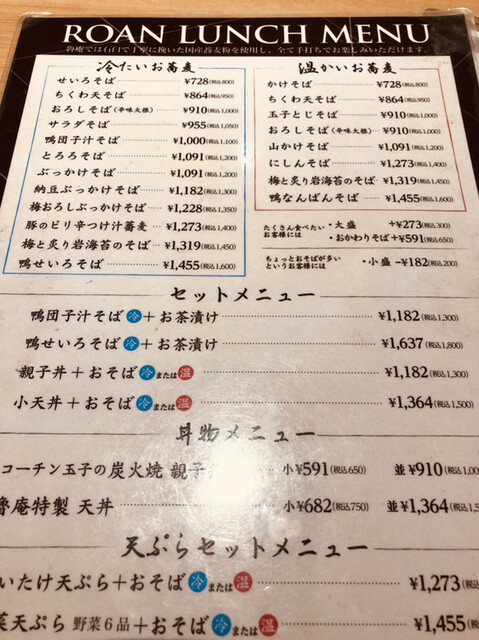 ROAN LUNCH MENU
魯庵では石臼で丁寧に挽いた国産蕎麦粉を使用し、全て手打ちでお楽しみいただけます。
冷たいお蕎麦
せいろそば ¥728(税込800)
ちくわ天そば ¥864(税込950)
おろしそば(辛味大根) ¥910(税込1,000)
サラダそば ¥955(税込1,050)
鴨団子汁そば ¥1,000(税込1,100)
とろろそば ¥1,091(税込1,200)
ぶっかけそば ¥1,091(税込1,200)
納豆ぶっかけそば ¥1,182(税込1,300)
梅おろしぶっかけそば ¥1,228(税込1,350)
豚のピリ辛つけ汁蕎麦 ¥1,273(税込1,400)
梅と炙り岩海苔のそば ¥1,319(税込1,450)
鴨せいろそば ¥1,455(税込1,600)
温かいお蕎麦
かけそば ¥728(税込800)
ちくわ天そば ¥864(税込950)
玉子とじそば ¥910(税込1,000)
おろしそば(辛味大根) ¥910(税込1,000)
山かけそば ¥1,091(税込1,200)
にしんそば ¥1,273(税込1,400)
梅と炙り岩海苔のそば ¥1,319(税込1,450)
鴨なんばんそば ¥1,455(税込1,600)
たくさん食べたいお客様には
・大盛 +¥273(税込300)
・おかわりそば+¥591(税込650)
ちょっとおそばが多いというお客様には
・小盛 −¥182(税込200)
セットメニュー
鴨団子汁そば 冷 + お茶漬け ¥1,182(税込1,300)
鴨せいろそば 冷 + お茶漬け ¥1,637(税込1,800)
親子丼 + おそば 冷 または 温 ¥1,182(税込1,300)
小天丼 + おそば 冷 または 温 ¥1,364(税込1,500)
丼物メニュー
コーチン玉子の炭火焼 親子 小¥591(税込650) 並¥910(税込1,00
魯庵特製 天丼 小¥682(税込750) 並¥1,364(税込1,5
天ぷらセットメニュー
いたけ天ぷら+おそば 冷 または 温 ¥1,273(税込1,40
菜天ぷら 野菜6品+おそば 冷 または 温 ¥1,455(税込1,60